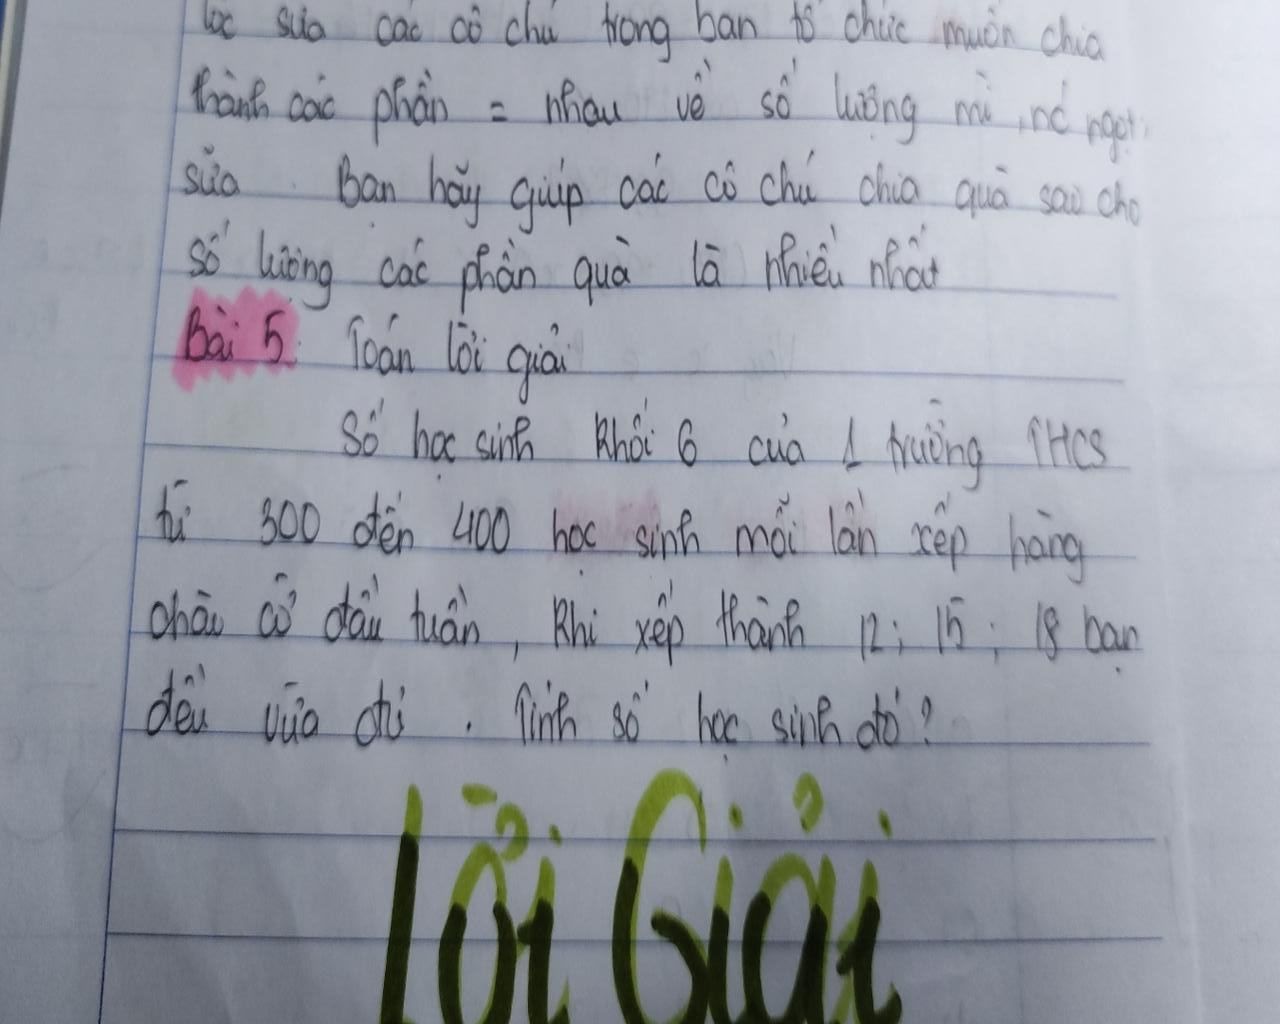 lốc sữa các cô chú trong ban tổ chức muốn chia
thành các phần = nhau về số lượng mì, nc ngọt,
sữa. Bạn hãy giúp các cô chú chia quà sao cho
số lượng các phần quà là nhiều nhất
Bài 5: Toán lời giải
Số học sinh khối 6 của 1 trường THCS
từ 300 đến 400 học sinh mỗi lần xếp hàng
chào cờ đầu tuần, khi xếp thành 12; 15; 18 bạn
đều vừa đủ. Tính số học sinh đó?
Lời Giải